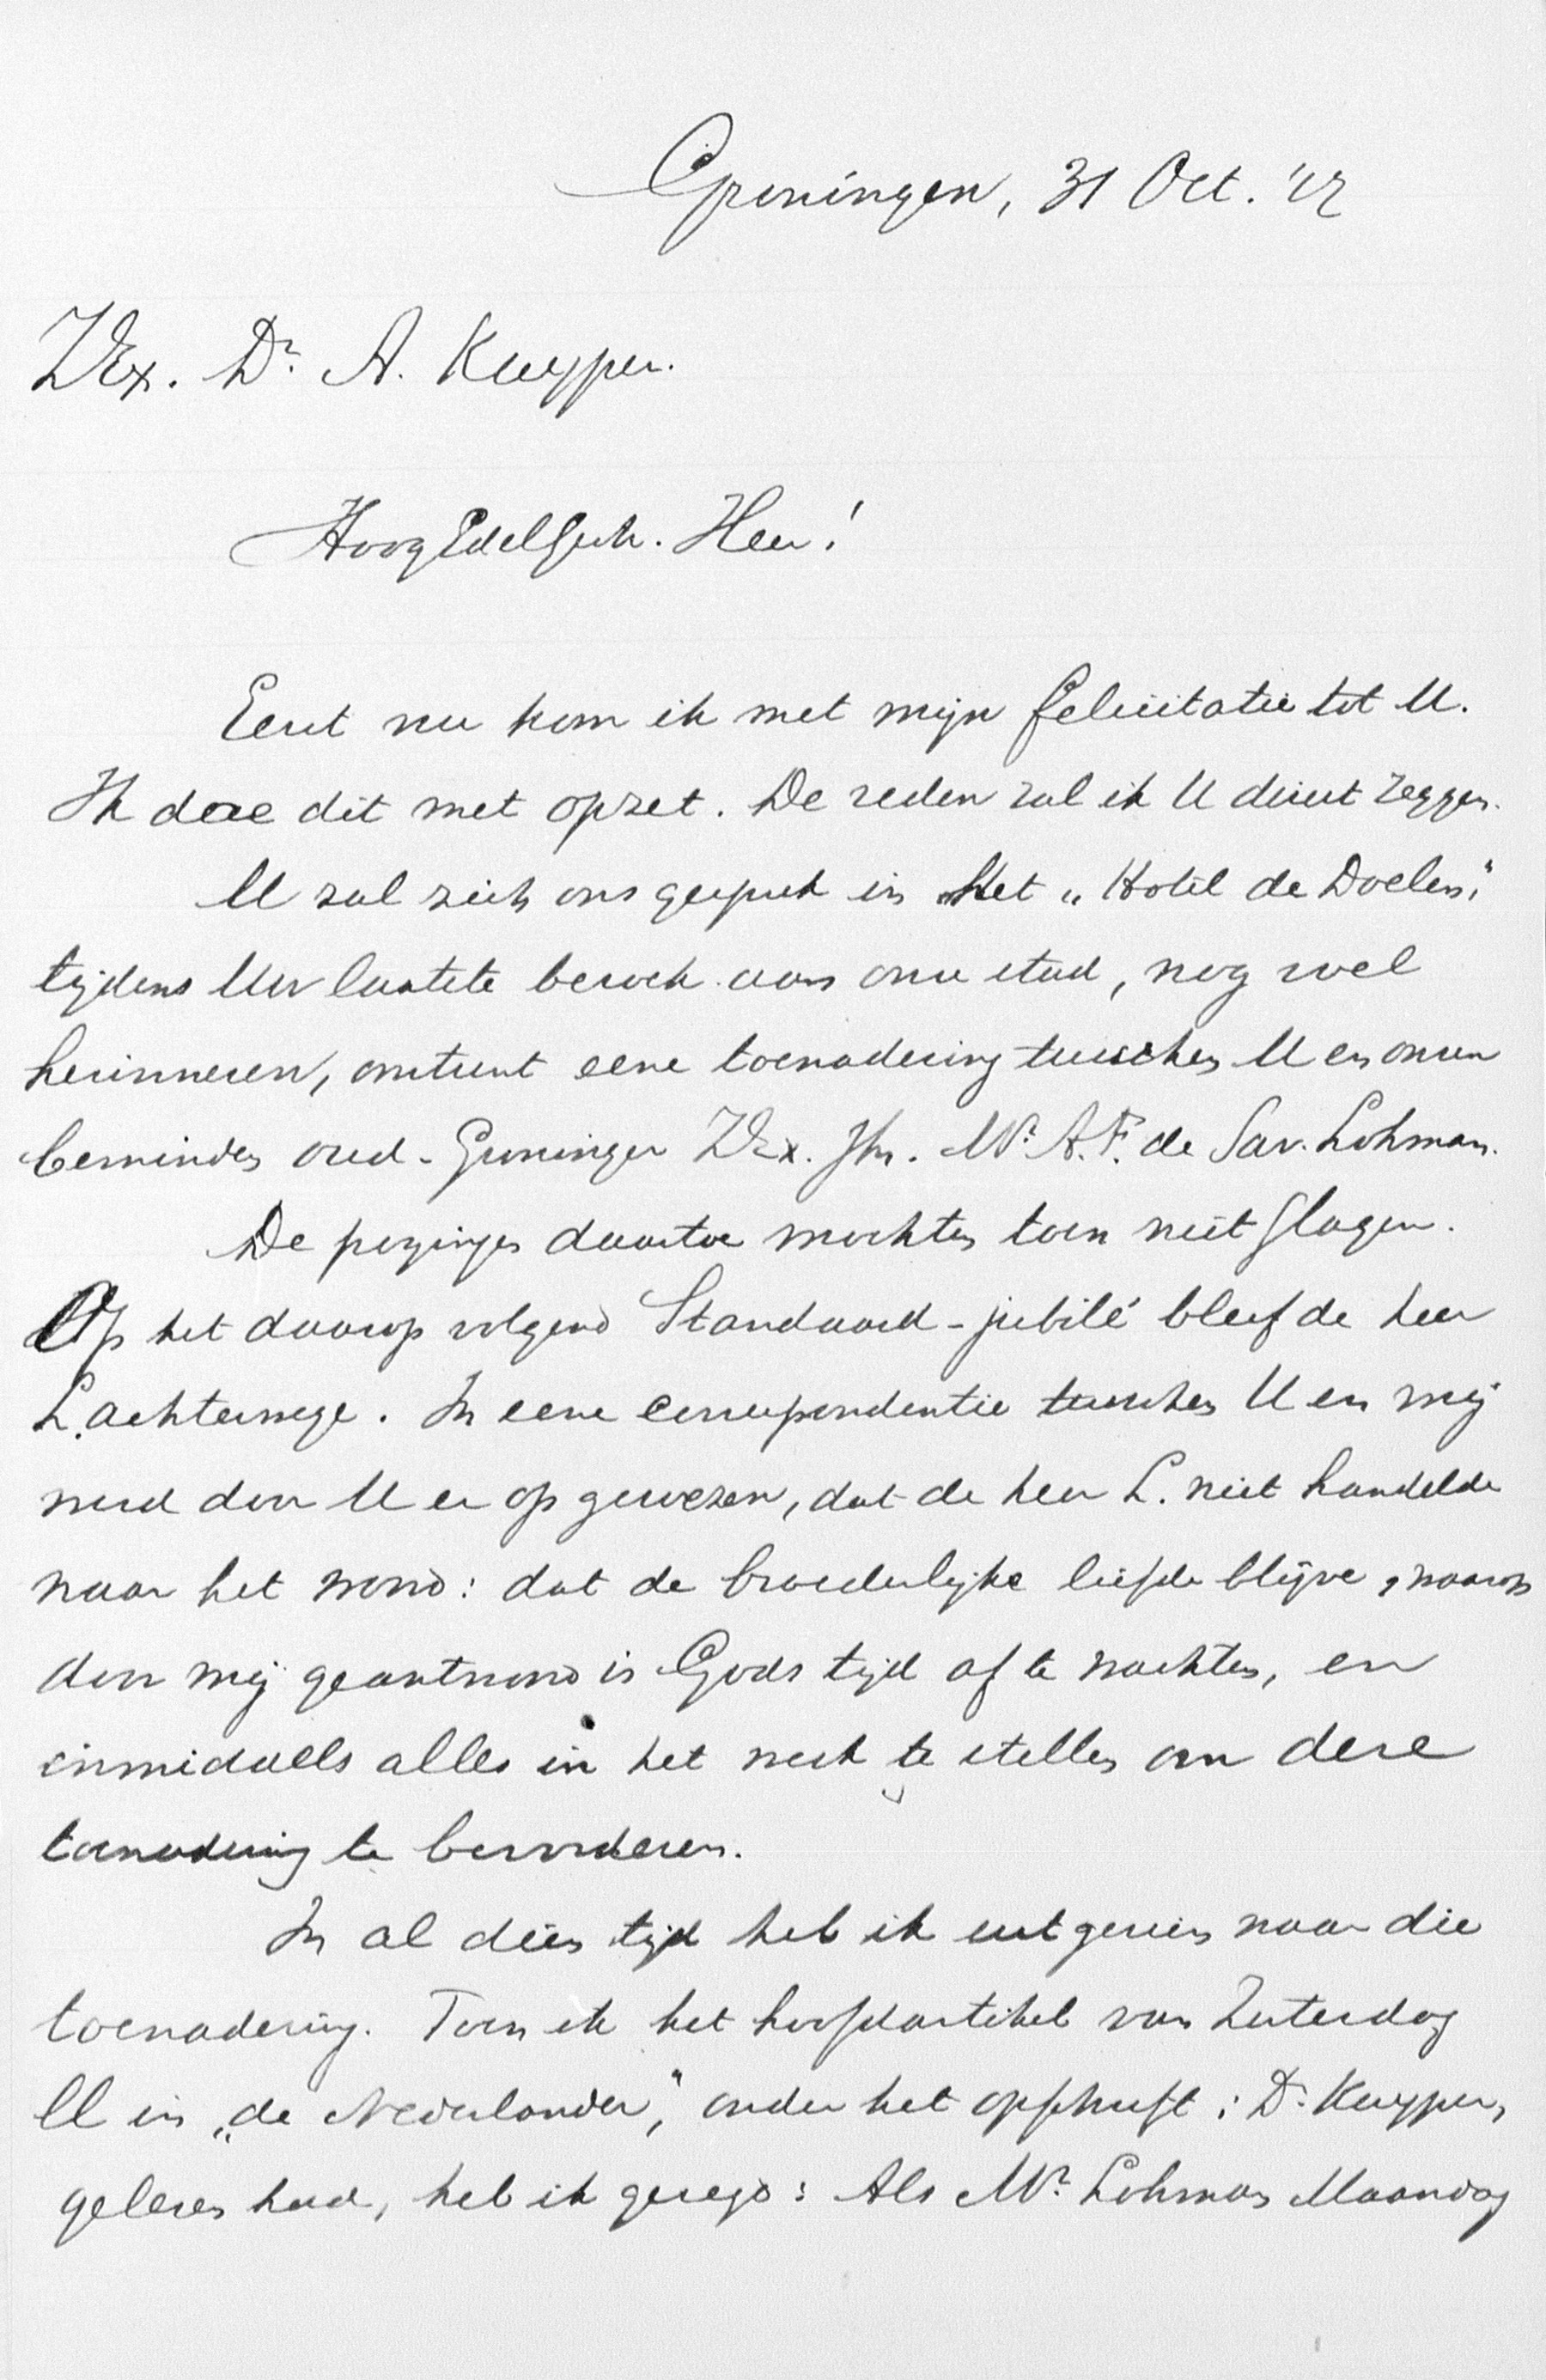 Groningen, 31 Oct. '17
ZEx. Dr. A. Kuyper.
HoogEdelGestr. Heer!
Eerst nu kom ik met mijn felicitatie tot U.
Ik doe dit met opzet. De reden zal ik U direct zeggen.
U zal zich ons gesprek in het „Hotel de Doelen",
tijdens Uw laatste bezoek aan onze stad, nog wel
herinneren, omtrent eene toenadering tusschen U en onzen
beminden oud-Groninger ZEx. Jhr. Mr. A.F. de Sav. Lohman.
De pogingen daartoe mochten toen niet slagen.
Op het daarop volgend Standaard-jubilé bleef de heer
L. achterwege. In eene correspondentie tusschen U en mij
werd door U er op gewezen, dat de heer L. niet handelde
naar het woord: dat de broederlijke liefde blijve, waarop
door mij geantwoord is Gods tijd af te wachten, en
inmiddels alles in het werk te stellen om deze
toenadering te bevorderen.
In al dien tijd heb ik uitgezien naar die
toenadering. Toen ik het hoofdartikel van Zaterdag
ll in „de Nederlander", onder het opschrift: Dr. Kuyper,
gelezen had, heb ik gezegd: Als Mr. Lohman Maandag